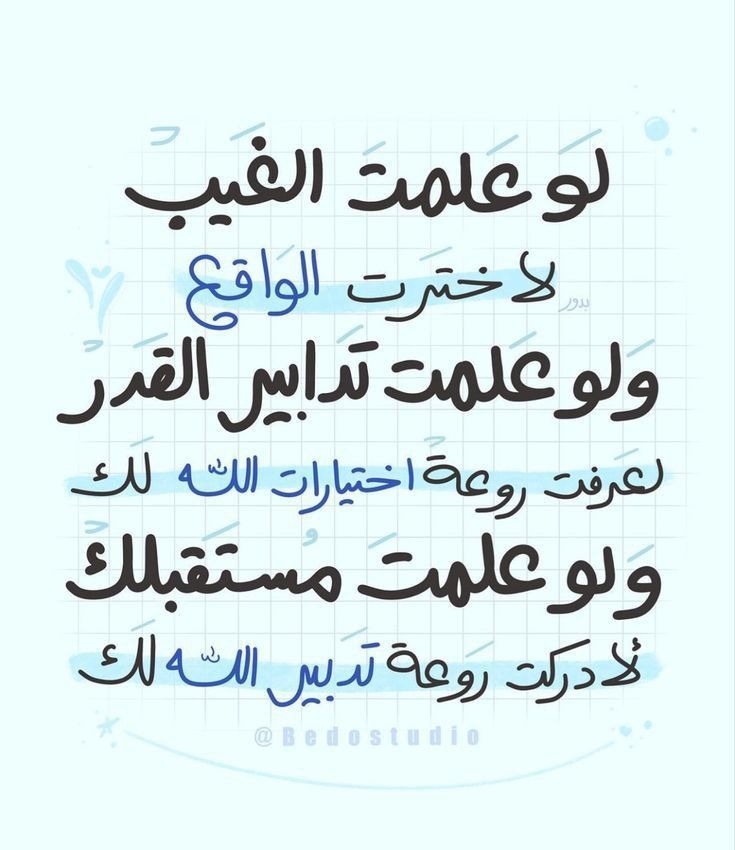 لَو عَلمتَ الغَيب
لاختَرت الوَاقع
بدور
وَلو عَلمت تَدابير القَدر
لعَرفت روعة اختيارات الله لَك
وَلو علمتَ مُستَقبلك
لأدركت رَوعة تَدبير الله لَك
@Bedostudio